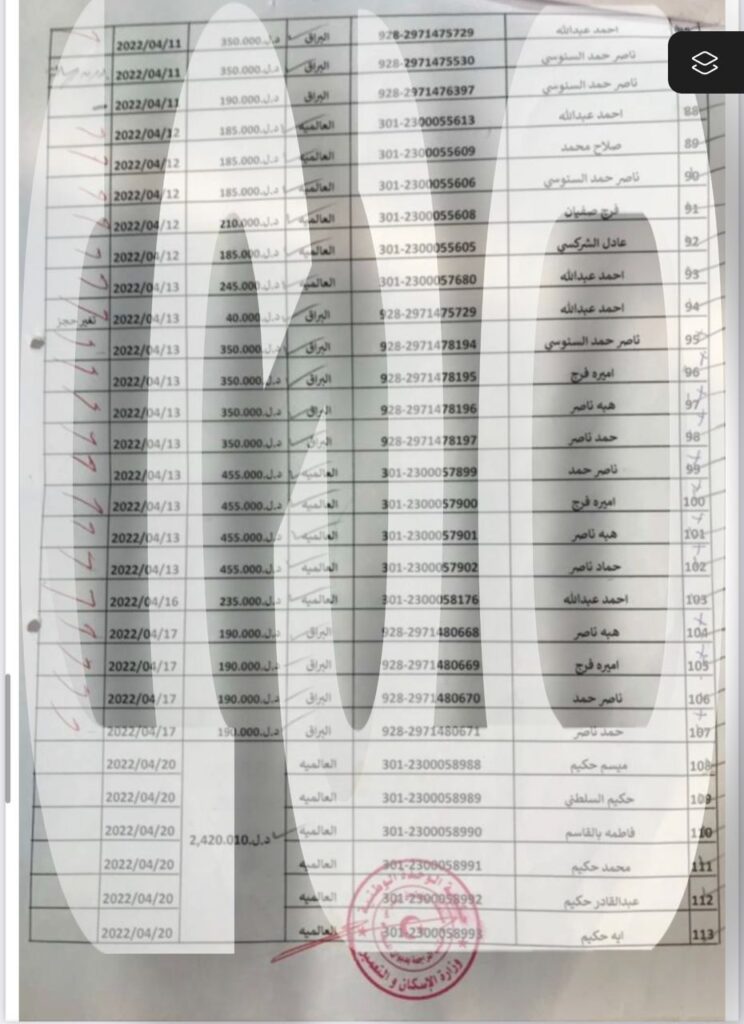 احمد عبدالله 928-2971475729 البراق د.ل.350.000 2022/04/11
ناصر حمد السنوسي 928-2971475530 البراق د.ل.350.000 2022/04/11
ناصر حمد السنوسي 928-2971476397 البراق د.ل.190.000 2022/04/11
88 احمد عبدالله 301-2300055613 العالميه د.ل.185.000 2022/04/12
89 صلاح محمد 301-2300055609 العالميه د.ل.185.000 2022/04/12
90 ناصر حمد السنوسي 301-2300055606 العالميه د.ل.185.000 2022/04/12
91 فرج صفيان 301-2300055608 العالميه د.ل.210.000 2022/04/12
92 عادل الشركسي 301-2300055605 العالميه د.ل.185.000 2022/04/12
93 احمد عبدالله 301-2300057680 العالميه د.ل.245.000 2022/04/13
94 احمد عبدالله 928-2971475729 البراق د.ل.40.000 2022/04/13 تغير حجز
95 ناصر حمد السنوسي 928-2971478194 البراق د.ل.350.000 2022/04/13
96 اميره فرج 928-2971478195 البراق د.ل.350.000 2022/04/13
97 هبه ناصر 928-2971478196 البراق د.ل.350.000 2022/04/13
98 حمد ناصر 928-2971478197 البراق د.ل.350.000 2022/04/13
99 ناصر حمد 301-2300057899 العالميه د.ل.455.000 2022/04/13
100 اميره فرج 301-2300057900 العالميه د.ل.455.000 2022/04/13
101 هبه ناصر 301-2300057901 العالميه د.ل.455.000 2022/04/13
102 حماد ناصر 301-2300057902 العالميه د.ل.455.000 2022/04/13
103 احمد عبدالله 301-2300058176 العالميه د.ل.235.000 2022/04/16
104 هبه ناصر 928-2971480668 البراق د.ل.190.000 2022/04/17
105 اميره فرج 928-2971480669 البراق د.ل.190.000 2022/04/17
106 ناصر حمد 928-2971480670 البراق د.ل.190.000 2022/04/17
107 حمد ناصر 928-2971480671 البراق د.ل.190.000 2022/04/17
108 ميسم حكيم 301-2300058988 العالميه 2022/04/20
109 حكيم السلطني 301-2300058989 العالميه 2022/04/20
110 فاطمه بالقاسم 301-2300058990 العالميه د.ل.2,420.010 2022/04/20
111 محمد حكيم 301-2300058991 العالميه 2022/04/20
112 عبدالقادر حكيم 301-2300058992 العالميه 2022/04/20
113 ايه حكيم 301-2300058993 العالميه 2022/04/20
حكومة الوحدة الوطنية
وزارة الإسكان و التعمير